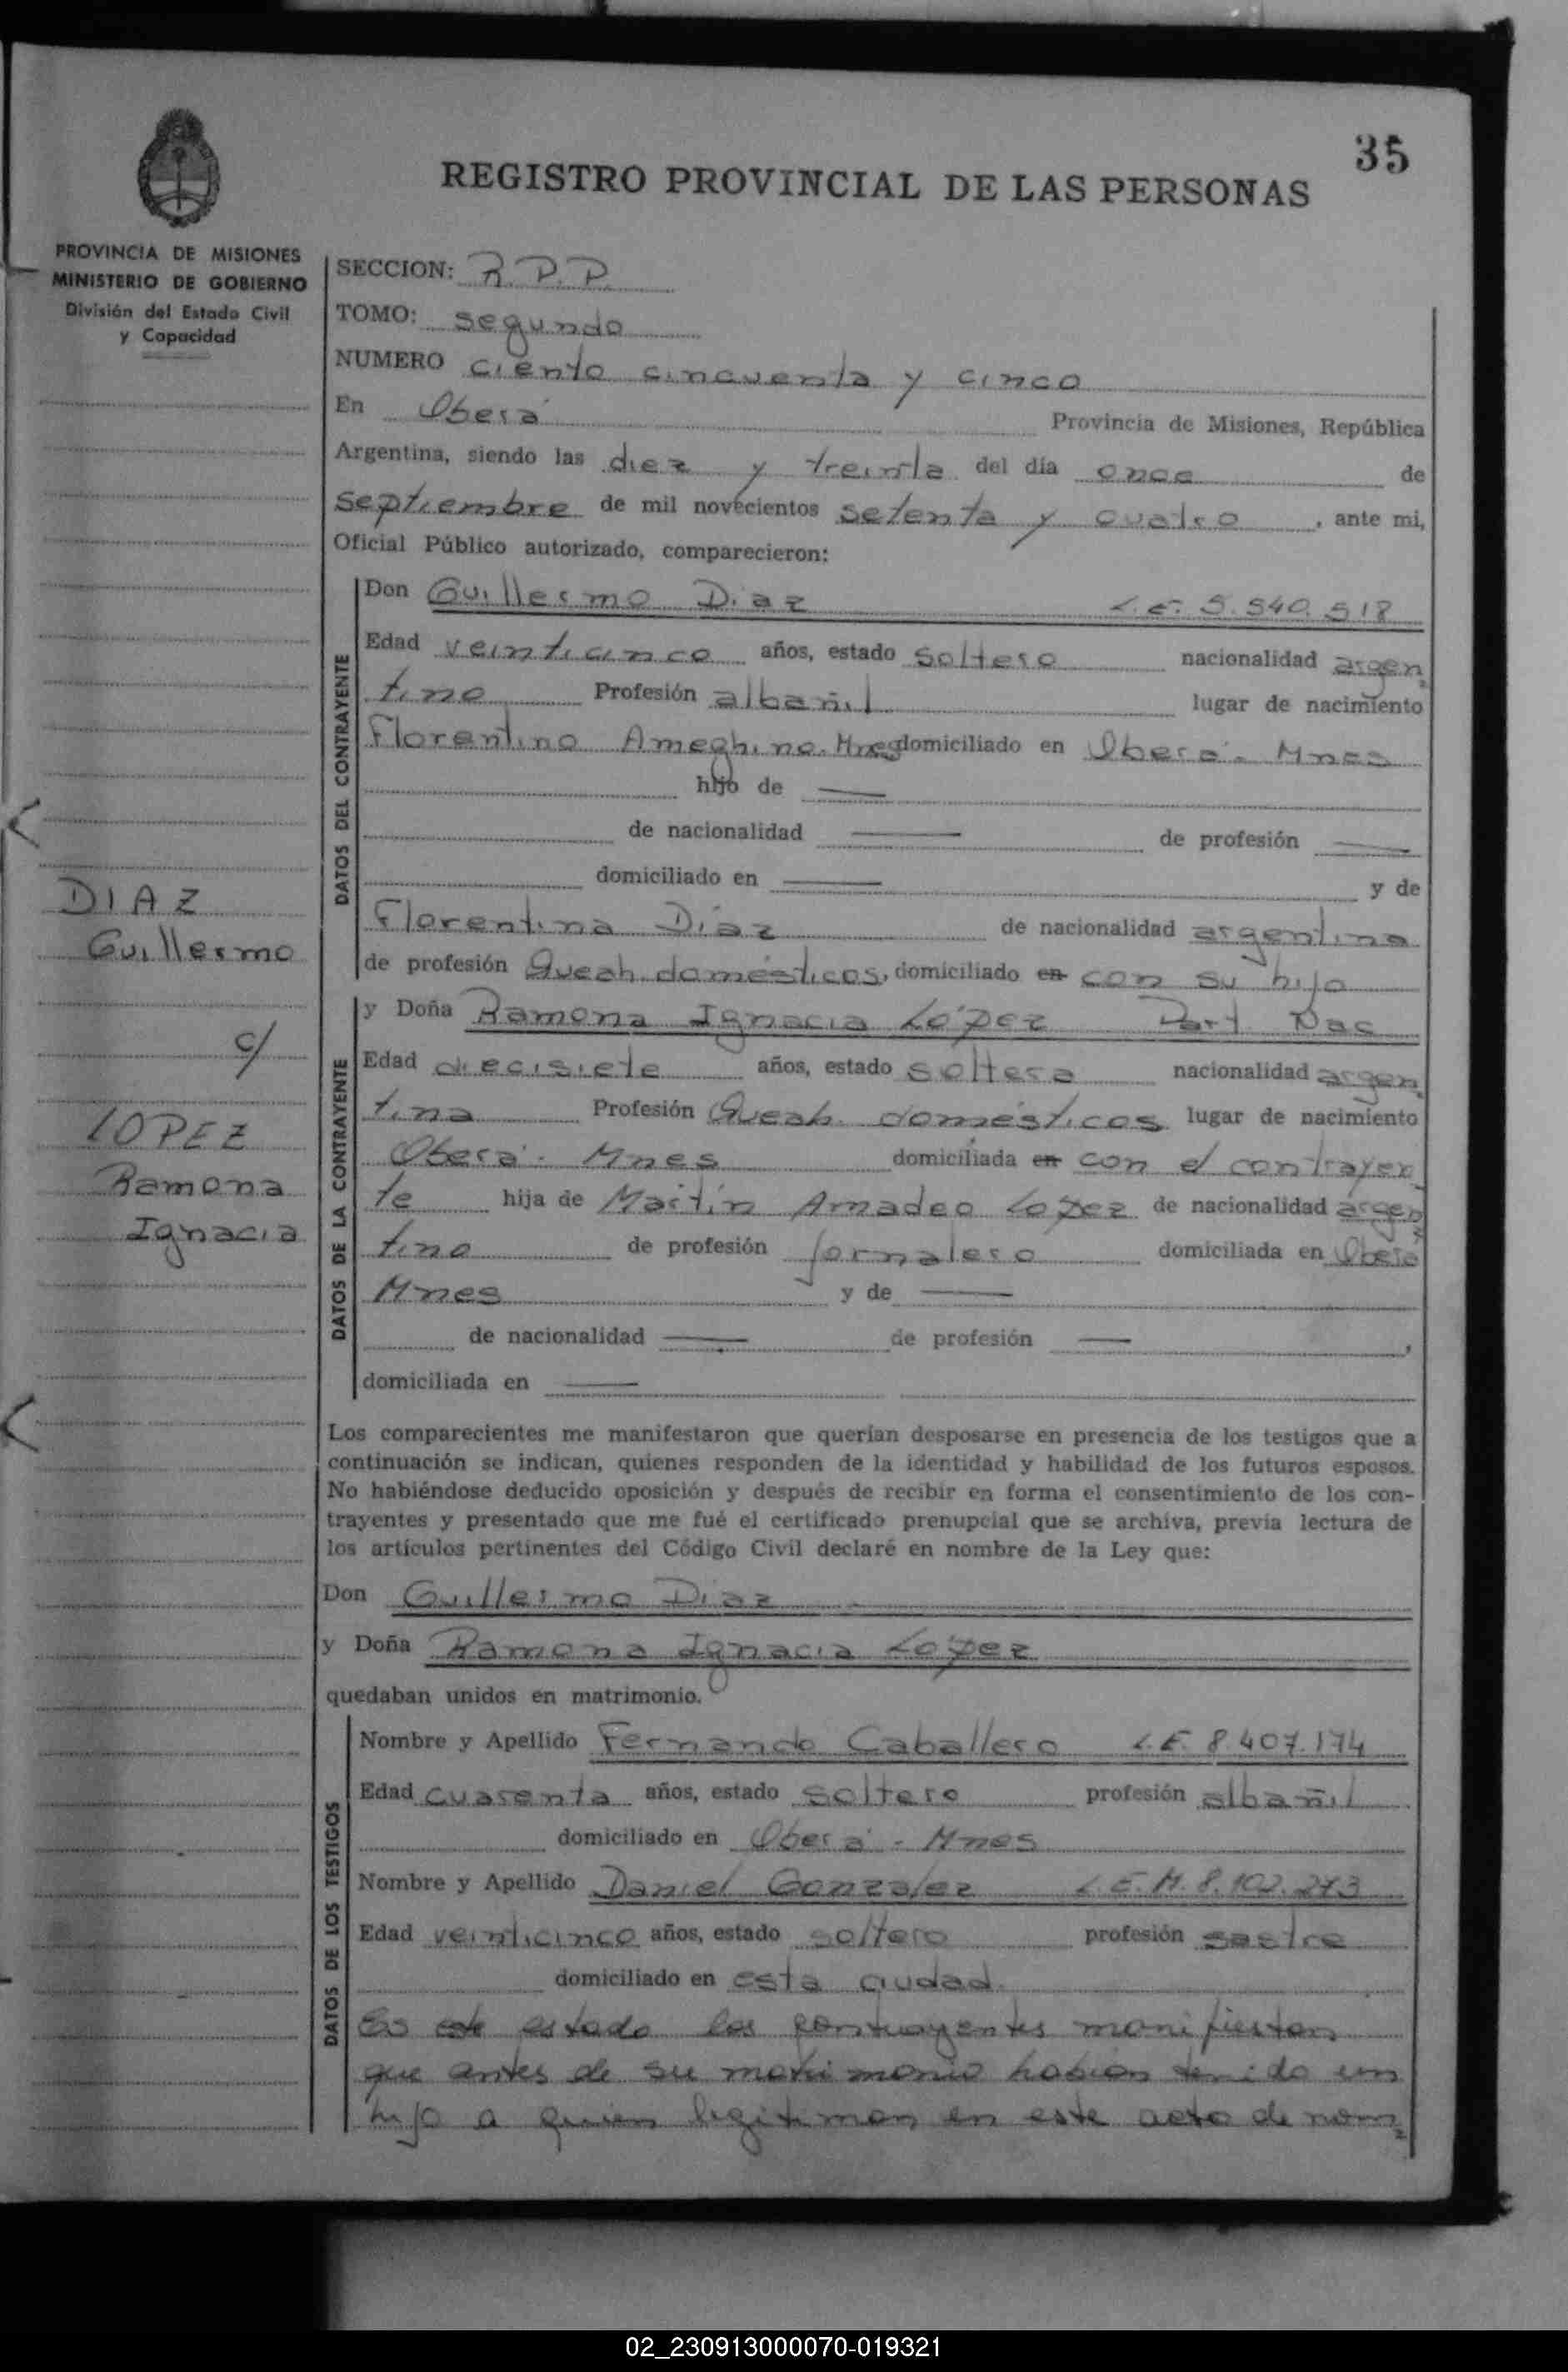 35
REGISTRO PROVINCIAL DE LAS PERSONAS
PROVINCIA DE MISIONES
MINISTERIO DE GOBIERNO
División del Estado Civil
y Capacidad
DIAZ
Guillermo
c/
LOPEZ
Ramona
Ignacia
SECCION: R.P.P.
TOMO: segundo
NUMERO ciento cincuenta y cinco
En Oberá Provincia de Misiones, República
Argentina, siendo las diez y treinta del día once de
septiembre de mil novecientos setenta y cuatro, ante mi,
Oficial Público autorizado, comparecieron:
DATOS DEL CONTRAYENTE
Don Guillermo Diaz L.E. 5.540.518
Edad veinticinco años, estado soltero nacionalidad argen
tino Profesión albañil lugar de nacimiento
Florentino Ameghino. Mnes domiciliado en Oberá. Mnes
hijo de —
de nacionalidad — de profesión —
domiciliado en — y de
Florentina Díaz de nacionalidad argentina
de profesión Queah. domésticos, domiciliado en con su hijo
DATOS DE LA CONTRAYENTE
y Doña Ramona Ignacia López Part Nac
Edad diecisiete años, estado soltera nacionalidad argen
tina Profesión Queah. domésticos lugar de nacimiento
Oberá. Mnes domiciliada en con el contrayen
te hija de Martín Amadeo Lopez de nacionalidad argen
tino de profesión jornalero domiciliada en Oberá
Mnes y de —
de nacionalidad — de profesión — ,
domiciliada en —
Los comparecientes me manifestaron que querían desposarse en presencia de los testigos que a
continuación se indican, quienes responden de la identidad y habilidad de los futuros esposos.
No habiéndose deducido oposición y después de recibir en forma el consentimiento de los con-
trayentes y presentado que me fué el certificado prenupcial que se archiva, previa lectura de
los artículos pertinentes del Código Civil declaré en nombre de la Ley que:
Don Guillermo Diaz
y Doña Ramona Ignacia López
quedaban unidos en matrimonio.
DATOS DE LOS TESTIGOS
Nombre y Apellido Fernando Caballero L.E. 8.407.174
Edad cuarenta años, estado soltero profesión albañil
domiciliado en Oberá - Mnes
Nombre y Apellido Daniel Gonzalez L.E.M. 8.102.273
Edad veinticinco años, estado soltero profesión sastre
domiciliado en esta ciudad.
En este estado los contrayentes manifiestan
que antes de su matrimonio habían tenido un
hijo a quien legitiman en este acto de nom
02_230913000070-019321